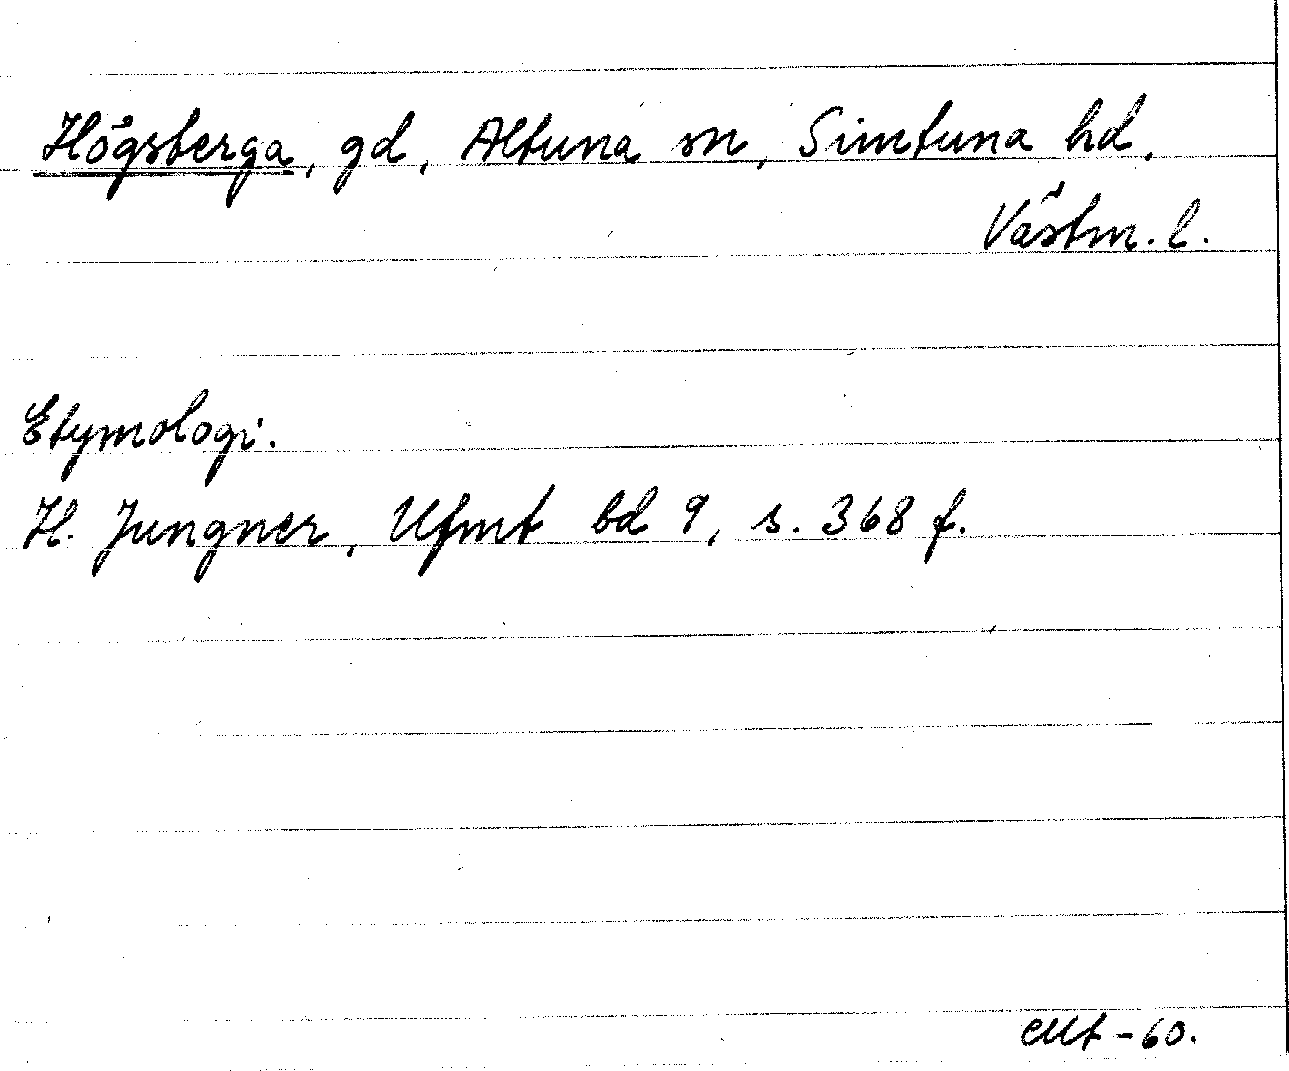 Högsberga, gd, Altuna sn, Simtuna hd,
Västm. l.
Etymologi.
H. Jungner, Ufmt bd 9, s. 368 f.
-60.